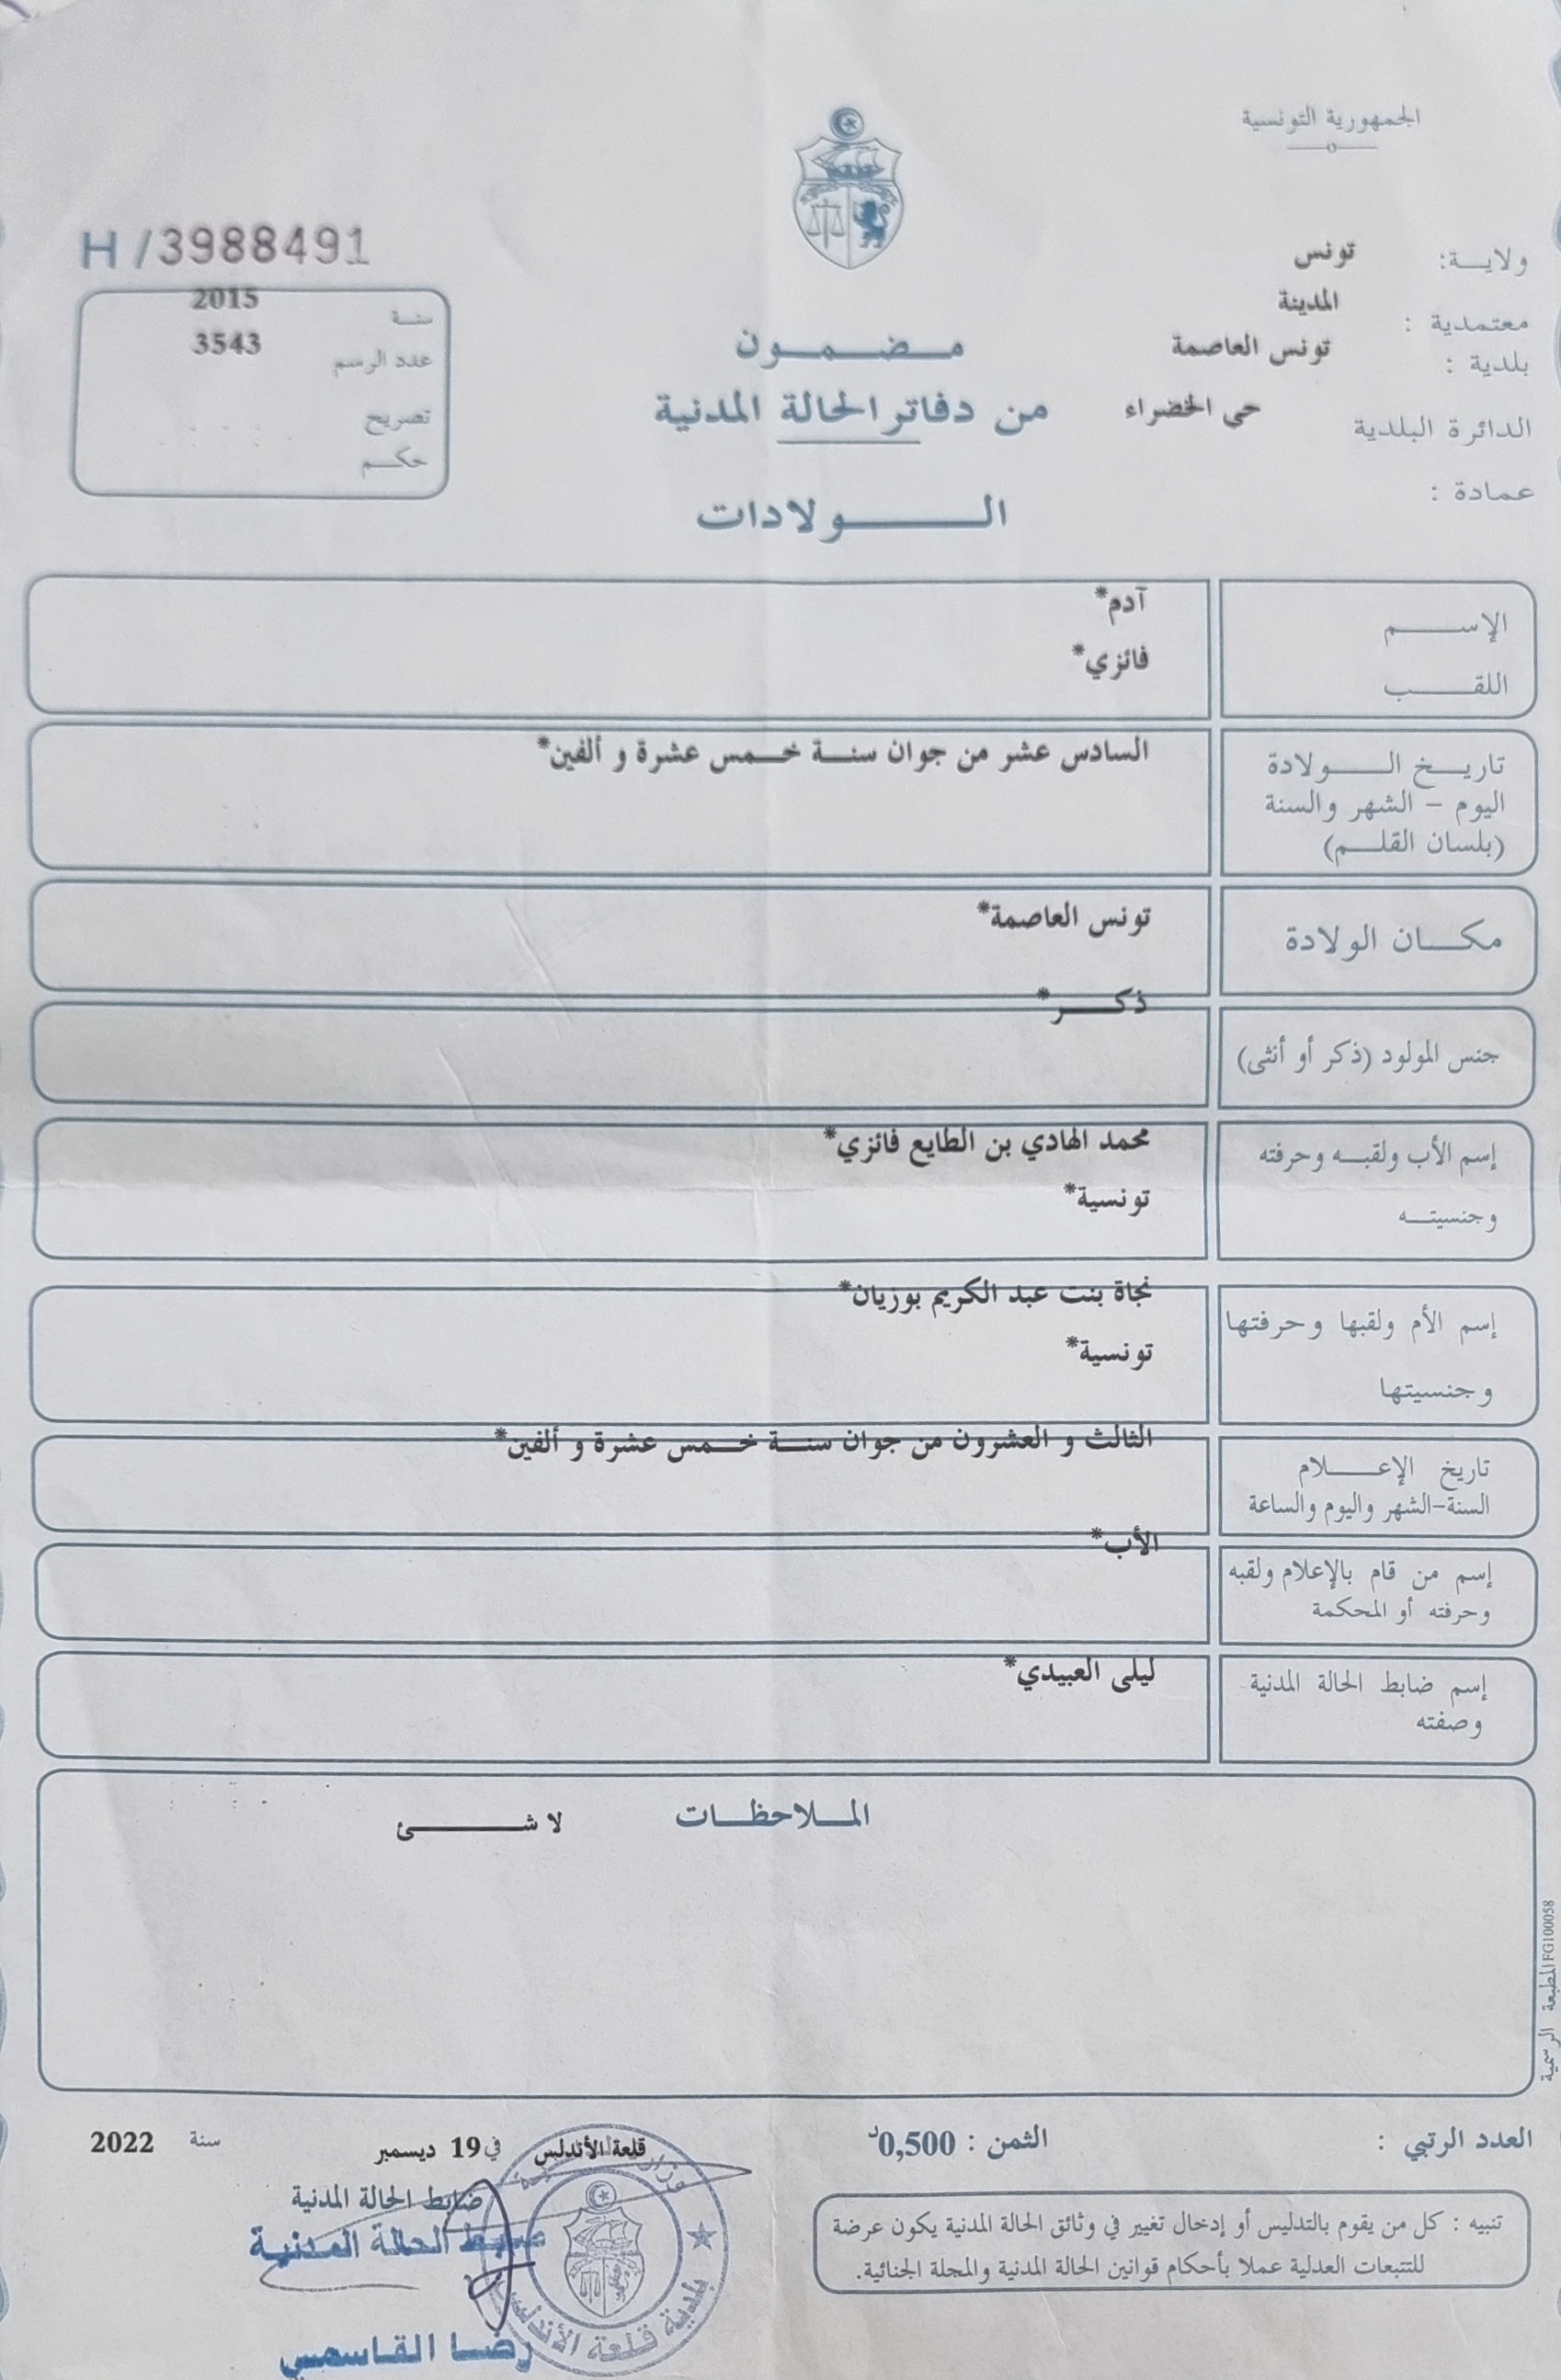 الجمهورية التونسية
ولاية: تونس
معتمدية : المدينة
بلدية : تونس العاصمة
الدائرة البلدية حي الخضراء
عمادة :
مضمون
من دفاتر الحالة المدنية
الولادات
H/3988491
سنة 2015
عدد الرسم 3543
تصريح
حكم
الإسم آدم*
اللقب فائزي*
تاريخ الولادة السادس عشر من جوان سنة خمس عشرة و ألفين*
اليوم - الشهر والسنة
(بلسان القلم)
مكان الولادة تونس العاصمة*
جنس المولود (ذكر أو أنثى) ذكر*
إسم الأب ولقبه وحرفته محمد الهادي بن الطايع فائزي*
وجنسيته تونسية*
إسم الأم ولقبها وحرفتها نجاة بنت عبد الكريم بوزيان*
وجنسيتها تونسية*
تاريخ الإعلام الثالث و العشرون من جوان سنة خمس عشرة و ألفين*
السنة-الشهر واليوم والساعة
إسم من قام بالإعلام ولقبه الأب*
وحرفته أو المحكمة
إسم ضابط الحالة المدنية ليلى العبيدي*
وصفته
الملاحظات لا شئ
المطبعة الرسمية FG100058
العدد الرتبي : الثمن : 0,500د
قلعة الأندلس في 19 ديسمبر سنة 2022
ضابط الحالة المدنية
ضابط الحالة المدنية
رضا القاسمي
بلدية قلعة الأندلس
تنبيه : كل من يقوم بالتدليس أو إدخال تغيير في وثائق الحالة المدنية يكون عرضة
للتتبعات العدلية عملا بأحكام قوانين الحالة المدنية والمجلة الجنائية.